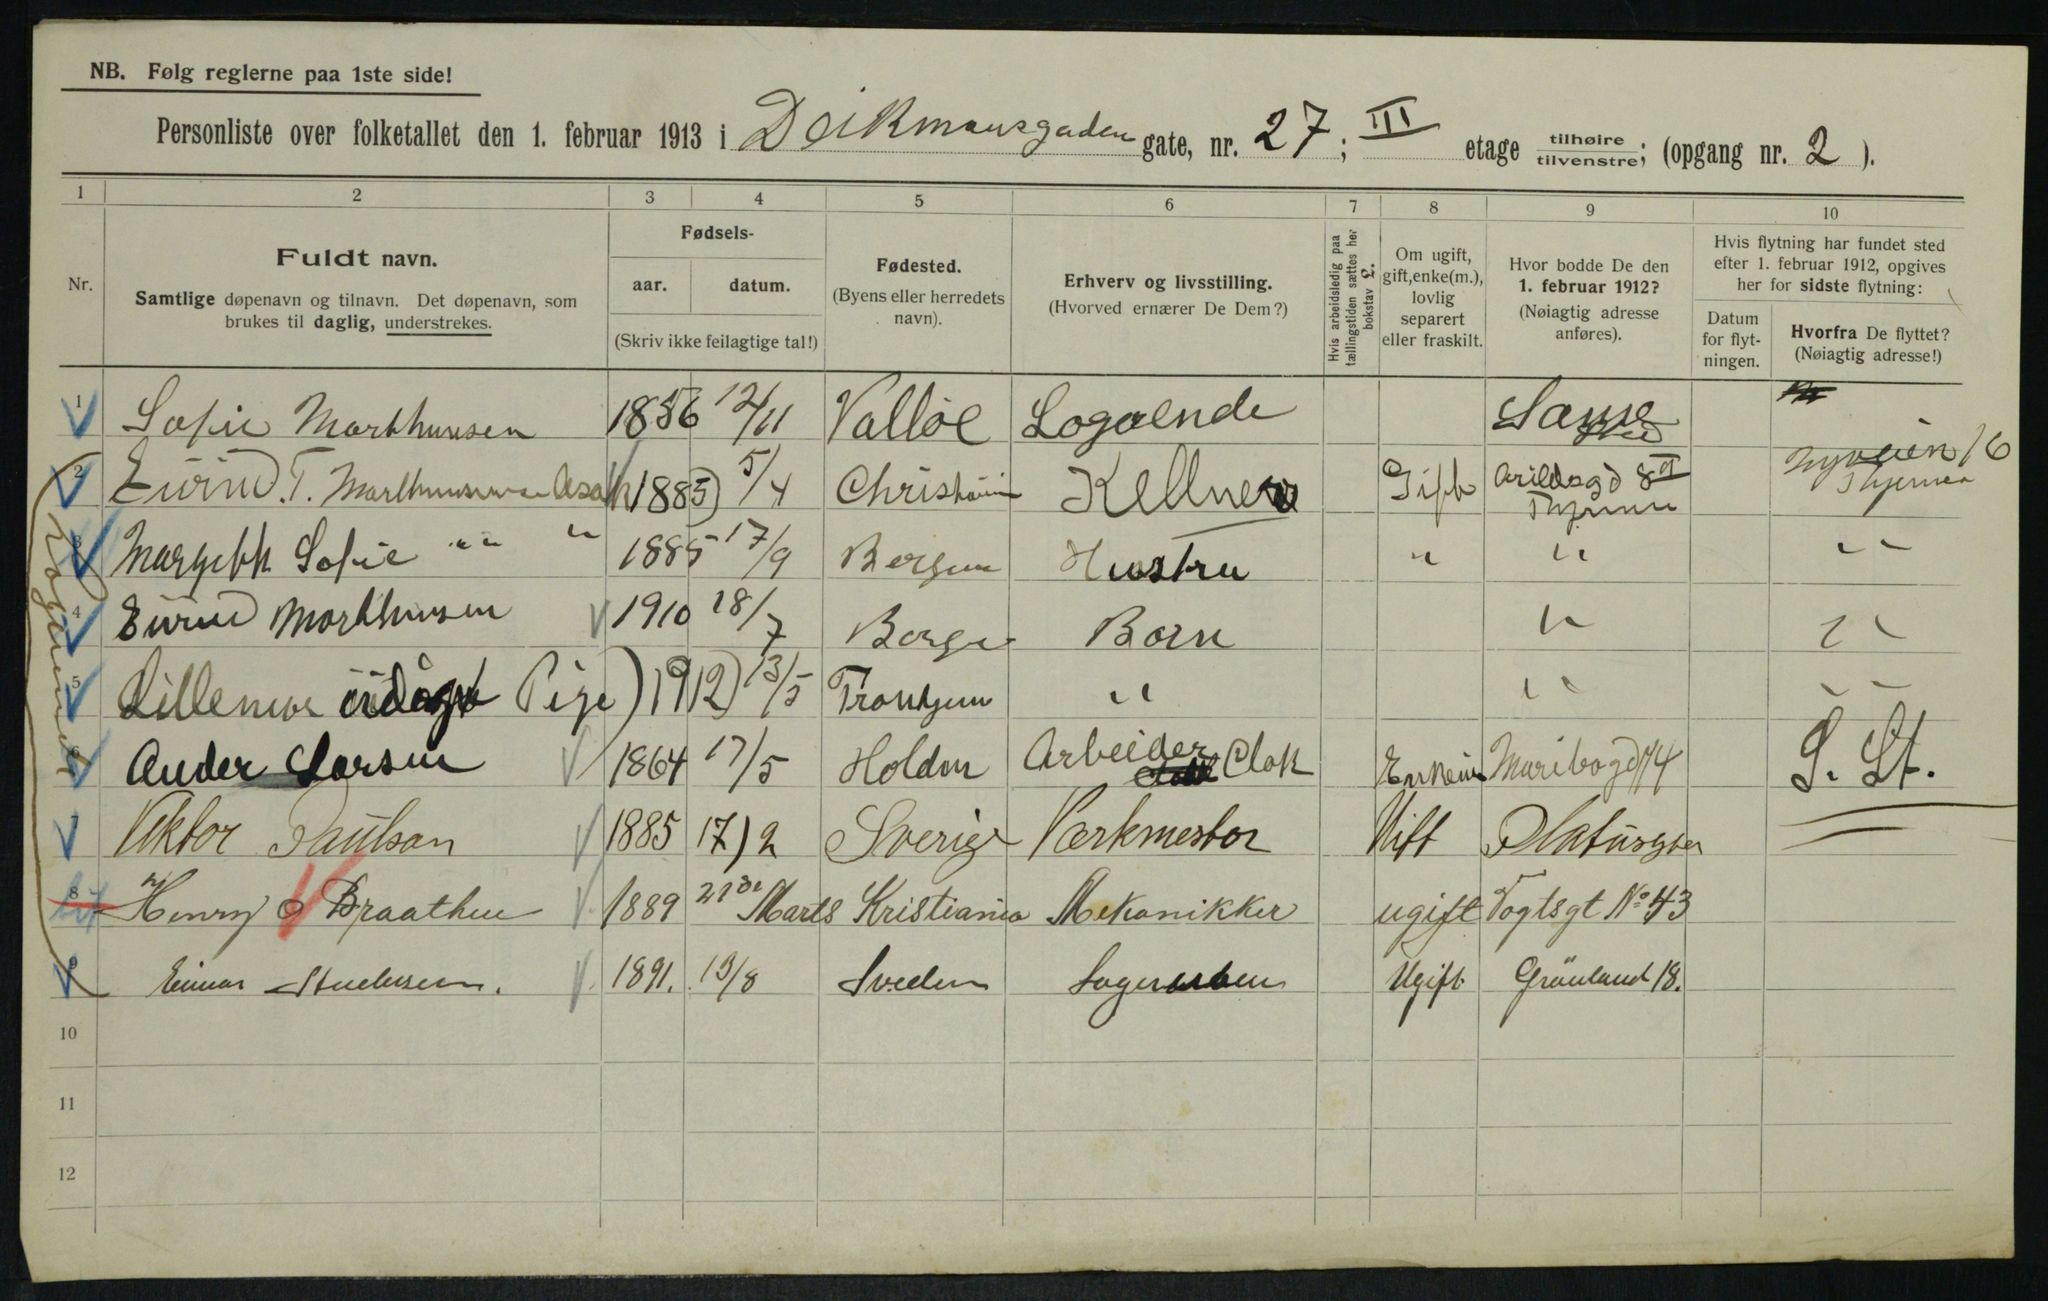 NB. Følg reglerne paa 1ste side!
Personliste over folketallet den 1. februar 1913 i Deikmansgaden gate, nr. 27; III etage tilhøire tilvenstre; (opgang nr. 2 ).
1 2 3 4 5 6 7 8 9 10
Nr.
Fuldt navn.
Samtlige døpenavn og tilnavn. Det døpenavn, som
brukes til daglig, understrekes.
Fødsels-
aar. datum.
(Skriv ikke feilagtige tal!)
Fødested.
(Byens eller herredets
navn).
Erhverv og livsstilling.
(Hvorved ernærer De Dem?)
Hvis arbeidsledig paa
tællingstiden sættes her
bokstav L.
Om ugift,
gift, enke(m.),
lovlig
separert
eller fraskilt.
Hvor bodde De den
1. februar 1912?
(Nøiagtig adresse
anføres).
Hvis flytning har fundet sted
efter 1. februar 1912, opgives
her for sidste flytning:
Datum
for flyt-
ningen.
Hvorfra De flyttet?
(Nøiagtig adresse!)
1 Sofie Marthinsen 1856 12/11 Valløe Logerende Samme
2 Eivind T. Marthinsen 1885) 5/4 Kellner Gift
3 Margith Sofie " " 1885 17/9 Bergen Hustru " " "
4 Eivind Marthinsen 1910 18/7 Berge Barn " "
5 Lillemor Pige) 1912) 13/5 Tronhjem " " "
6 Ander Larsen 1864 17/5 Holden Arbeider Clok Enkem Maribogd 74 S. St.
7 Viktor Paulsan 1885 17) 2 Sverige Værkmester
8 Henry Braathen 1889 21de Marts Kristiania Mekanikker ugift Vogtsgt No 43
9 Einar 1891. 13/8 Sveden Ugift Grönland 18.
10
11
12